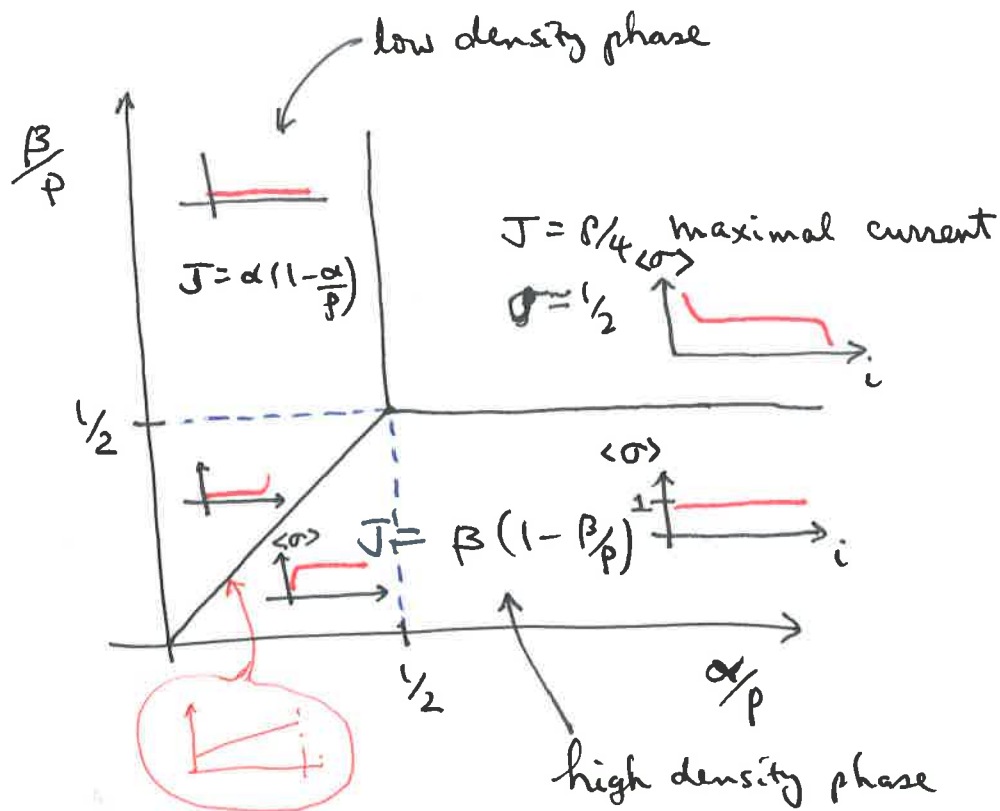 low density phase
β/p
J = p/4 maximal current
J = α(1-α/p)
<σ>
σ = 1/2
i
1/2
<σ>
1
<σ>
J = β(1-β/p)
i
1/2
α/p
high density phase